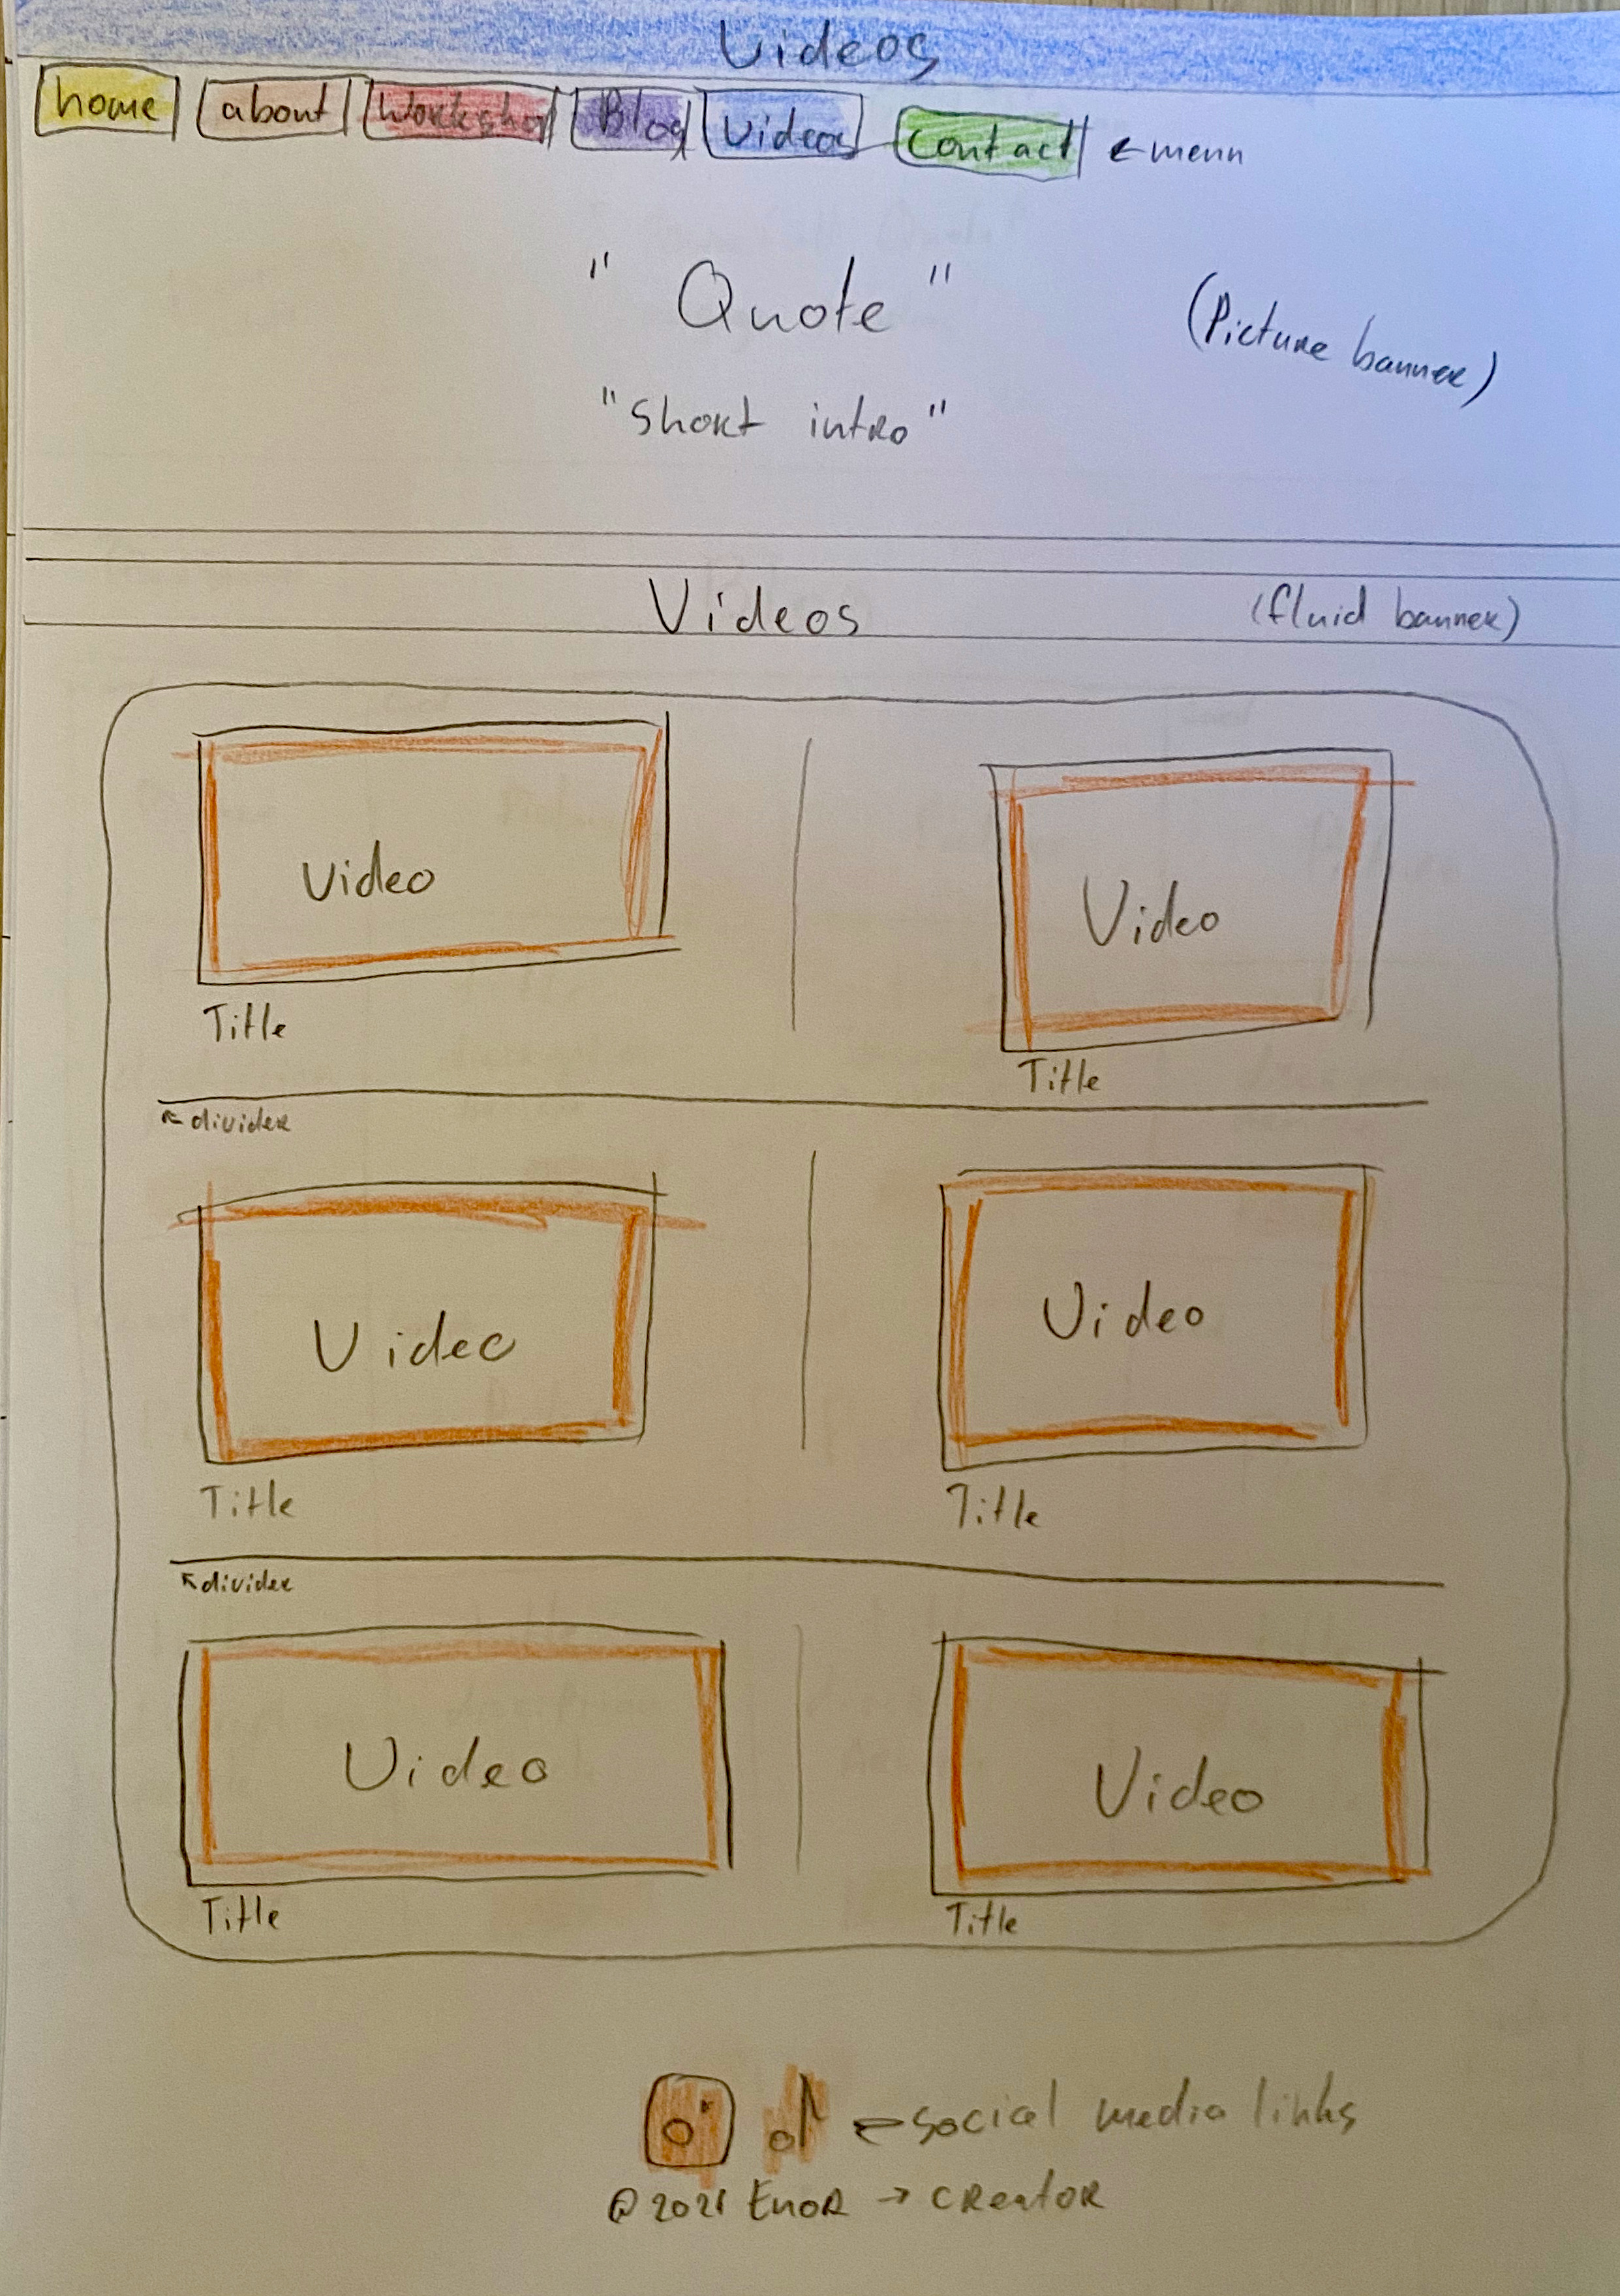 Videos
home about Workshop Blog Videos Contact ← menu
" Quote "
(Picture banner)
"Short intro"
Videos (fluid banner)
Video Video
Title Title
divider
Video Video
Title Title
divider
Video Video
Title Title
← social media links
@ 2021 EnoR → CReatoR